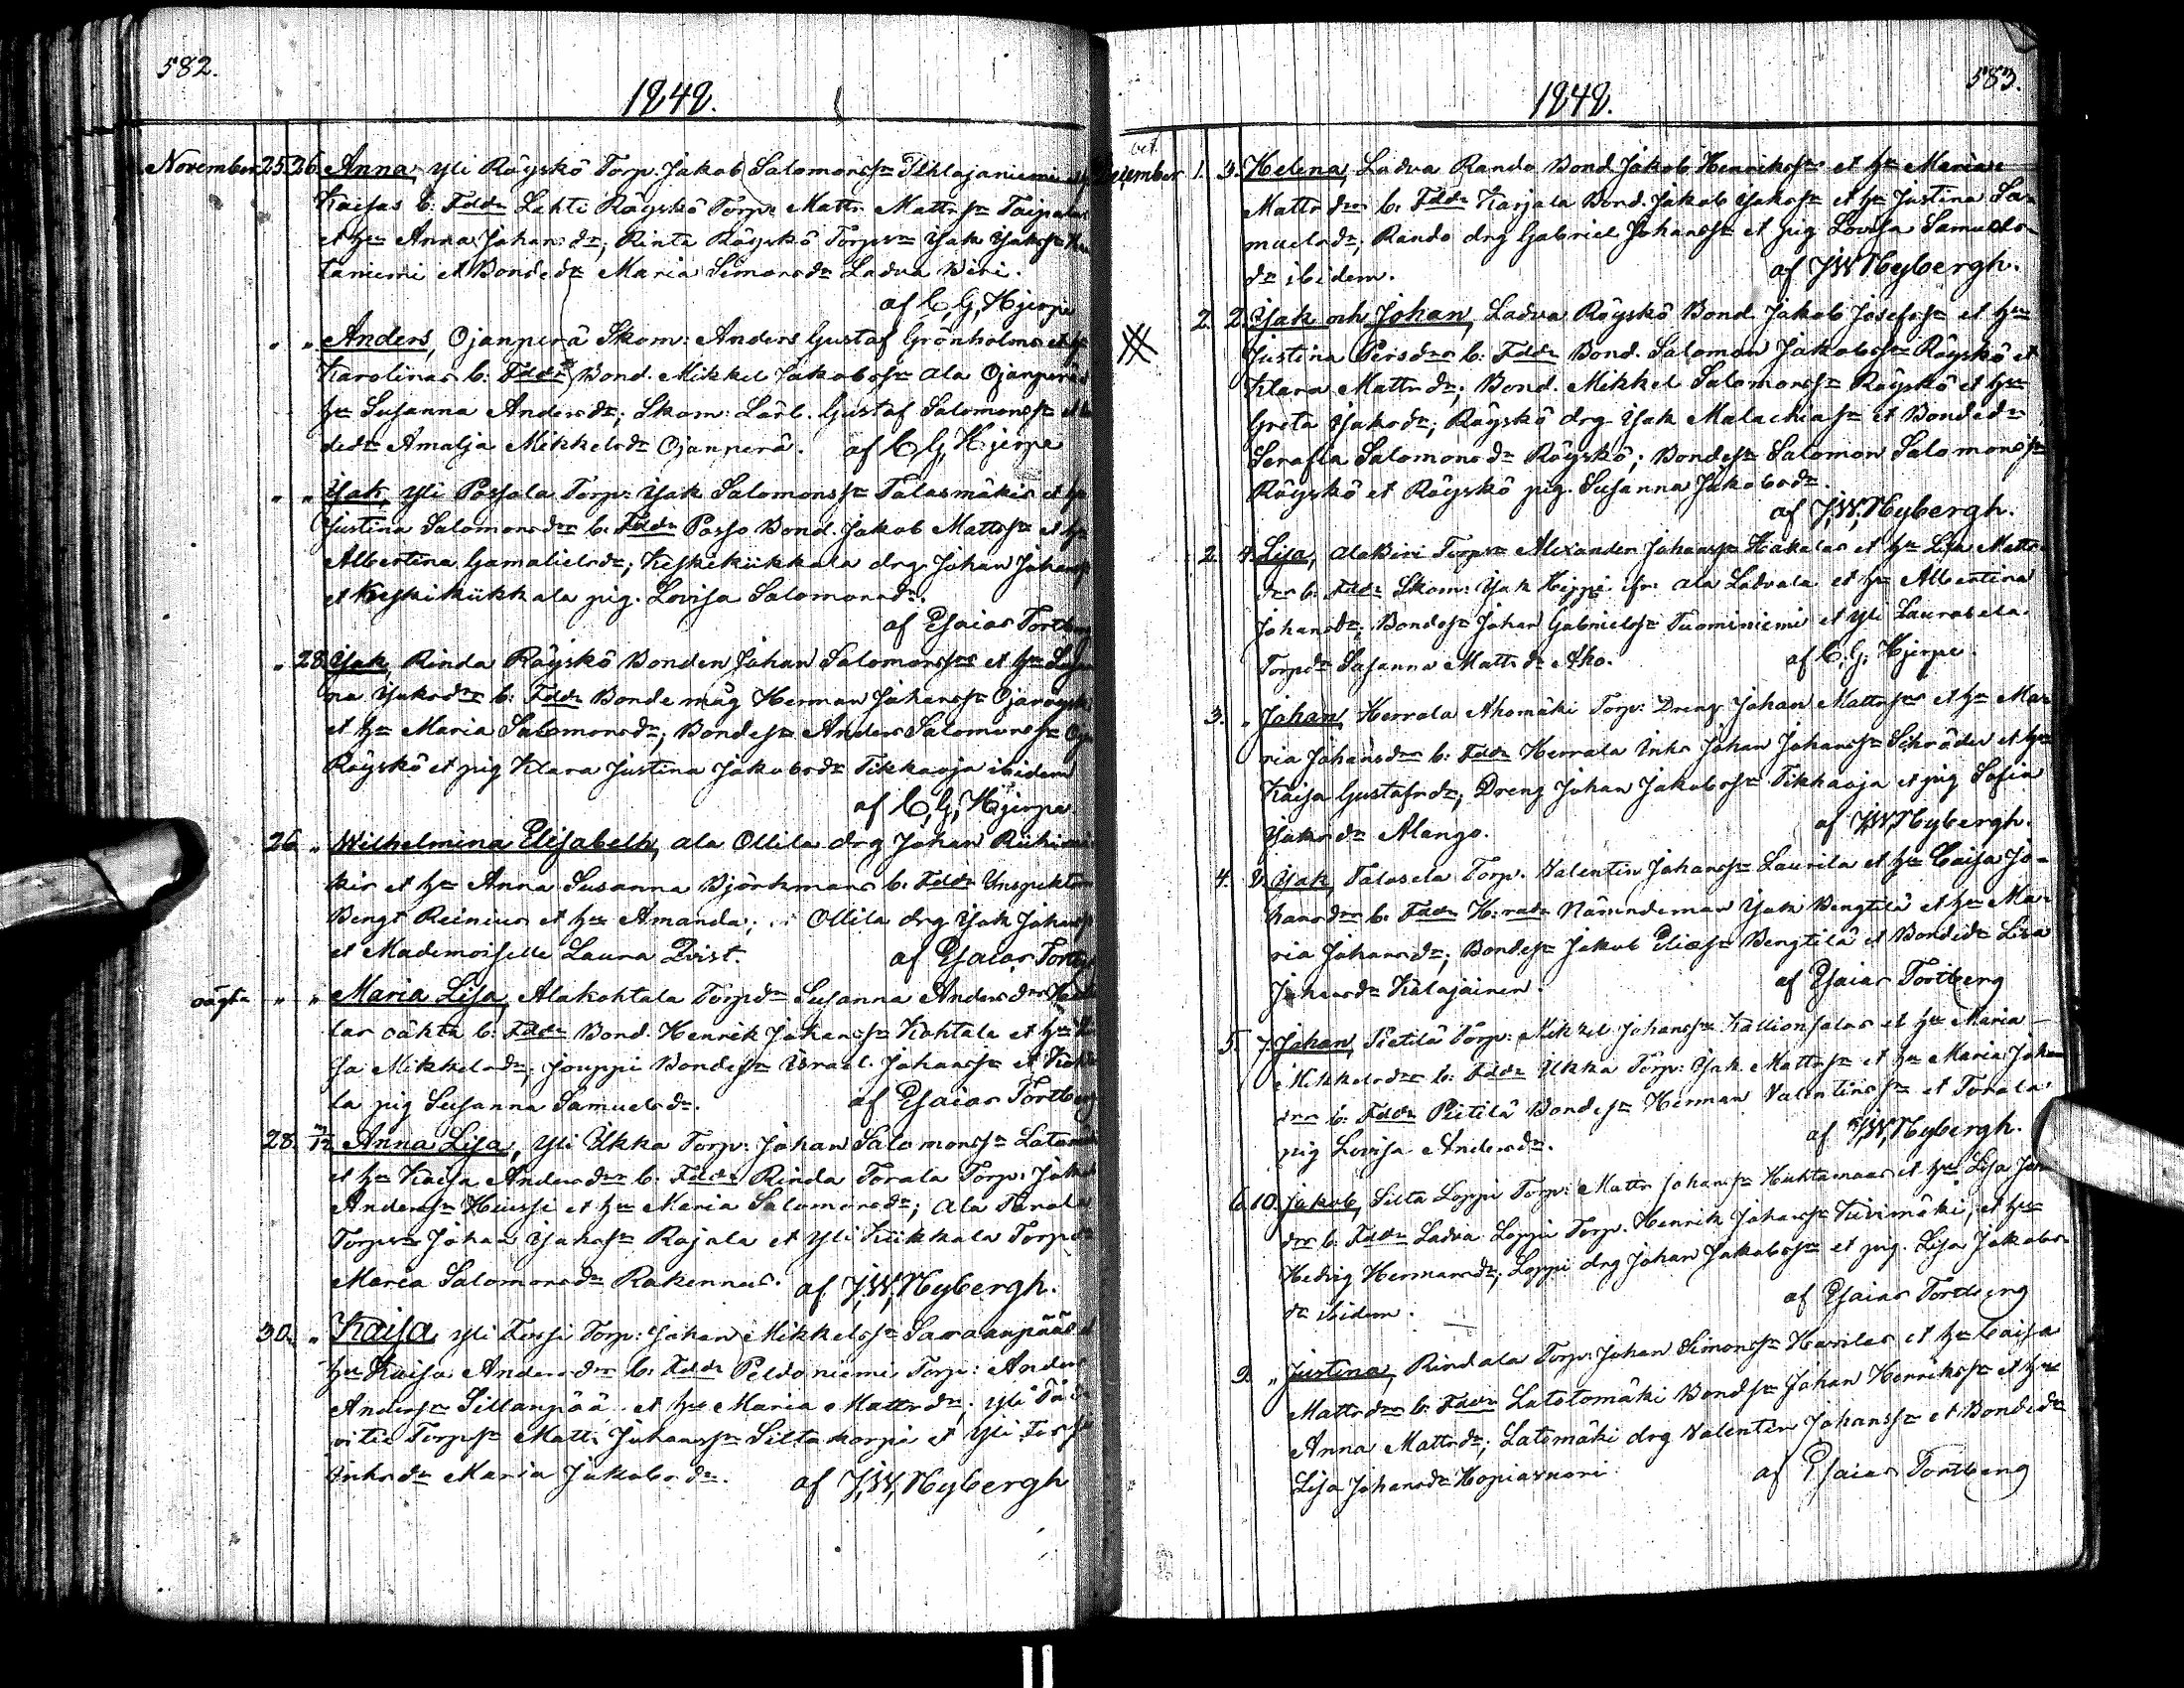 582.
1848.
November 25. 26. Anna, Yli Räyskö Torp. Jakob Salomonss:n Pihlajaniemi
Kaisas b: Fddr Lahti Räyskö Torp: Matts Mattss:n Taipalus
et h:u Anna Johansd:r; Rinta Räyskö Torps:n Isak Isakss:n
taniemi et Bonded:r Maria Simonsd:r Ladva Wiri.
af C, G, Hjerpe
" " Anders, Ojanperä Skom: Anders Gustaf Grönholms et h:u
Karolinas b: Fddr Bond. Mikkel Jakobss:n ala Ojanperä
h:u Susanna Andersd:r; Skom: Lärl. Gustaf Salomonss:n et
ded:r Amalja Mikkelsd:r Ojanperä. af C, G, Hjerpe
" " Isak, Yli Possola Torp: Isak Salomonss:n Talasmäkis et h:u
Justina Salomonsd:rs b: Fddr Posso Bond. Jakob Mattss:n et h:u
Albertina Gamalielsd:r; Keskikükkala drg Johan Johanss
et Keskikükkala pig. Lovisa Salomonsd:r.
af Esaias Tortberg
" 28. Isak, Rinda Räyskö Bonden Johan Salomonss:ns et h:u
na Isaksd:rs b: Fddr Bonde måg Herman Johanss:n Ojaräyskö
et h:u Maria Salomonsd:r; Bondes:n Anders Salomonss:n Oja
Räyskö et pig Klara Justina Jakobsd:r Tikkaoja ibidem
af C, G, Hjerpe
26. " Wilhelmina Elisabeth, ala Ollila drg Johan Riihimä
kis et h:u Anna Susanna Björkmans b: Fddr Inspektor
Bengt Reinius et h:u Amanda; Ollila drg Isak Johanss
et Mademoiselle Laura Qvist. af Esaias Tortberg
oägta " " Maria Lisa, Alakohtala Torpd:r Susanna Andersd:rs
las oäkta b: Fddr Bond. Henrik Johanss:n Kohtala et h:u
sa Mikkelsd:r; Jouppi Bondes:n Israel Johanss:n et Kohta
la pig Susanna Samuelsd:r. af Esaias Tortberg
28. Anna Lisa, Yli Ukka Torp: Johan Salomonss:n Latomä
et h:u Kaisa Andersd:rs b: Fddr Rinda Torala Torp: Jakob
Anderss:n Huissi et h:u Maria Salomonsd:r; Ala Torala
Torps:n Johan Isakss:n Rajala et Yli Kükkala Torpd:r
Maria Salomonsd:r Rakennus. af J, W, Nybergh.
30. " Kaisa, Yli Fossi Torp: Johan Mikkelss:n Saraanpääs et
h:u Kaisa Andersd:rs b: Fddr Peldoniemi Torp: Anders
Anderss:n Sillanpää et h:u Maria Mattsd:r; Yli
vitie Torps:n Matts Johanss:n Siltakorpi et Yli Fossi
Inhsd:r Maria Jakobsd:r. af J, W, Nybergh
583.
1848.
oct.
December 1. 3. Helena, Ladva Rando Bond Jakob Henrikss:ns et h:u Marias
Mattsd:rs b: Fddr Karjala Bond. Jakob Isakss:n et h:u Justina Sa-
muelsd:r; Rando drg Gabriel Johanss:n et pig Lovisa Samuels-
d:r ibidem. af J W Nybergh.
2. 2. Isak och Johan, Ladva Räyskö Bond Jakob Josefss:n et h:u
Justina Persd:rs b: Fddr Bond. Salomon Jakobss:n Räyskö et
Klara Mattsd:r; Bond. Mikkel Salomonss:n Räyskö et h:u
Greta Isaksd:r; Räyskö drg Isak Malachiass:n et Bonded:r
Serafia Salomonsd:r Räyskö; Bondes:n Salomon Salomonss:n
Räyskö et Räyskö pig. Susanna Jakobsd:r.
af J, W, Nybergh.
2. 4. Lisa, Ala Wiri Torps:n Alexander Johanss:n Hakalas et h:u Lisa Matts
d:rs b: Fddr Skom: Isak Hippi fr: ala Ladvala et h:u Albertina
Johansd:r; Bondes:n Johan Gabrielss:n Tuominiemi et Yli Laurosela
Torpd:r Susanna Mattsd:r Aho. af C. G. Hjerpe.
3. " Johan, Herrala Ahomäki Torp: Dreng Johan Mattss:ns et h:u Ma-
ria Johansd:rs b: Fddr Herrala Inhs Johan Johanss:n Schröder et h:u
Kaisa Gustafsd:r; Dreng Johan Jakobss:n Tikkaoja et pig Sofia
Isaksd:r Alango. af J, W, Nybergh.
4. 8. Isak, Talosela Torp. Valentin Johanss:n Laurila et h:u Caisa Jo-
hansd:rs b: Fddr H:rads Nämndeman Isak Bengtilä et h:u Ma-
ria Johansd:r; Bondes:n Jakob Eliass:n Bengtilä et Bonded:r Lisa
Johansd:r Kalajäinen. af Esaias Tortberg
5. 7. Johan, Pietilä Torp: Mikkel Johanss:n Kallionsalos et h:u Maria
Mikkelsd:rs b: Fddr Ukka Torp: Isak Mattss:n et h:u Maria Johans
d:rs b: Fddr Pietilä Bondes:n Herman Valentinss:n et Torala
pig Lovisa Andersd:r. af J, W, Nybergh.
6. 10. Jakob, Silta Loppi Torp: Matts Johanss:n Huhtamaas et h:u Lisa Johans
d:rs b: Fddr Ladva Loppi Torp. Henrik Johanss:n Kivimäki; et h:u
Hedvig Hermansd:r; Loppi drg Johan Jakobss:n et pig. Lisa Jakobs-
d:r ibidem. af Esaias Tortberg
9. " Justina, Rindala Torp: Johan Simonss:n Harrilas et h:u Caisa
Mattsd:rs b: Fddr Latotomäki Bonds:n Johan Henrikss:n et h:u
Anna Mattsd:r; Latomäki drg Valentin Johanss:n et Bonded:r
Lisa Johansd:r Hopiavuori af Esaias Tortberg